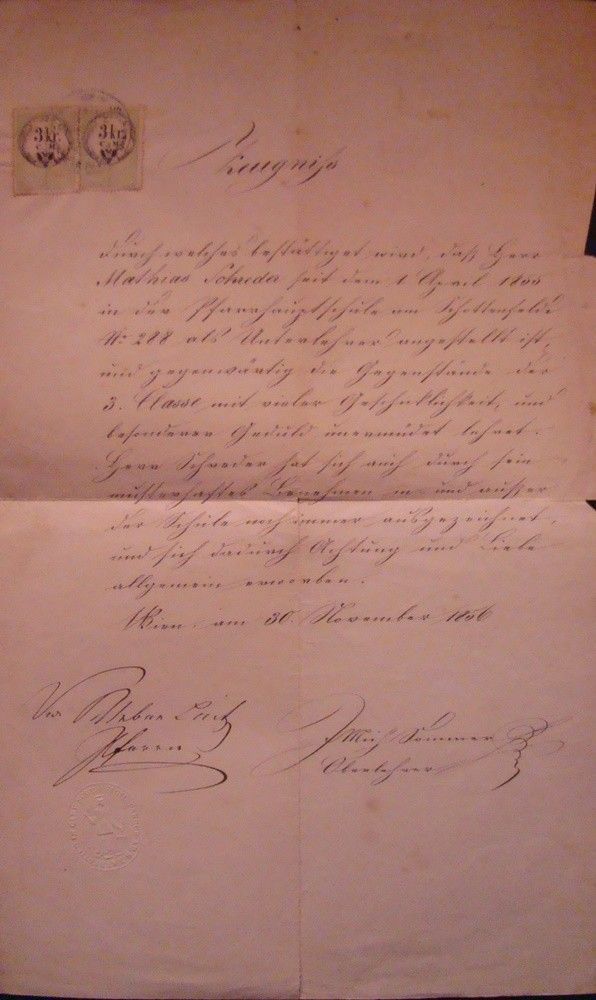 3 kr. 3 kr.
C.M. C.M.
Zeugniß
durch welches bestättiget wird, daß Herr
Mathias Schreder seit dem 1 April 1855
in der Pfarrhauptschule am Schottenfelde
No 288 als Unterlehrer angestellt ist,
und gegenwärtig die Gegenstände der
3. Classe mit vieler Geschiklichkeit, und
besonderer Geduld unermüdet lehret.
Herr Schreder hat sich auch durch sein
musterhaftes Benehmen in- und ausser
der Schule noch immer ausgezeichnet,
und sich dadurch Achtung und Liebe
allgemein erworben.
Wien am 30. November 1856
Urban
Pfarrer
Mich Sommer
Oberlehrer